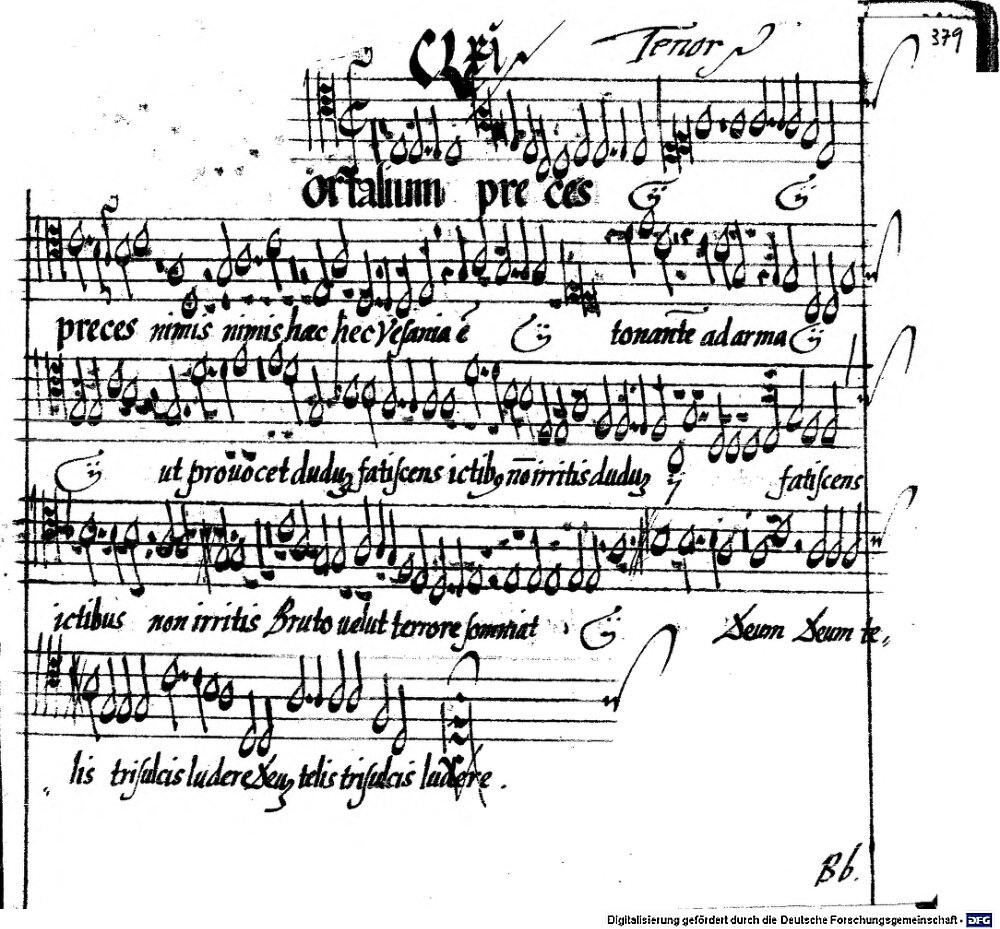 CLxi Tenor 379
ortalium pre ces ij ij
preces nimis nimis hæc hec Vesania ē ij tonante ad arma ij
ij ut provocet duduz fatiscens ictib9 non irritis duduz ij fatiscens
ictibus non irritis Bruto uelut terrore somniat ij Deum Deum te,
lis trisulcis ludere Deuz telis trisulcis ludere.
Bb.
Digitalisierung gefördert durch die Deutsche Forschungsgemeinschaft - DFG